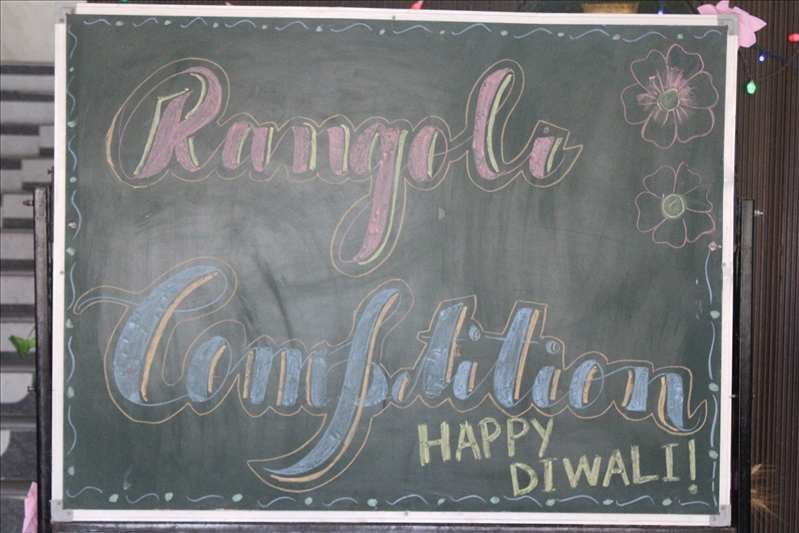 Rangoli
Competition
HAPPY
DIWALI!